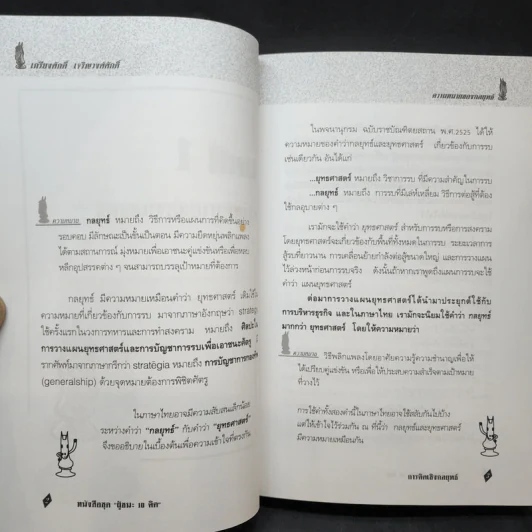 เกรียงศักดิ์ เจริญวงศ์ศักดิ์
ความหมาย กลยุทธ์ หมายถึง วิธีการหรือแผนการที่คิดขึ้นอย่าง
รอบคอบ มีลักษณะเป็นขั้นเป็นตอน มีความยืดหยุ่นพลิกแพลง
ได้ตามสถานการณ์ มุ่งหมายเพื่อเอาชนะคู่แข่งขันหรือเพื่อหลบ
หลีกอุปสรรคต่าง ๆ จนสามารถบรรลุเป้าหมายที่ต้องการ
กลยุทธ์ มีความหมายเหมือนคำว่า ยุทธศาสตร์ เดิมใช้ใน
ความหมายที่เกี่ยวข้องกับการรบ มาจากภาษาอังกฤษว่า strategy
ใช้ครั้งแรกในวงการทหารและการทำสงคราม หมายถึง ศิลปะใน
การวางแผนยุทธศาสตร์และการบัญชาการรบเพื่อเอาชนะศัตรู มี
รากศัพท์มาจากภาษากรีกว่า stratēgia หมายถึง การบัญชาการกองทัพ
(generalship) ด้วยจุดหมายต้องการพิชิตศัตรู
ในภาษาไทยอาจมีความสับสนเล็กน้อย
ระหว่างคำว่า "กลยุทธ์" กับคำว่า "ยุทธศาสตร์"
จึงขออธิบายในเบื้องต้นเพื่อความเข้าใจที่ตรงกัน
หนังสือชุด "ผู้ชนะ 10 คิด"
ความหมายของกลยุทธ์
ในพจนานุกรม ฉบับราชบัณฑิตยสถาน พ.ศ.2525 ได้ให้
ความหมายของคำว่ากลยุทธ์และยุทธศาสตร์ เกี่ยวข้องกับการรบ
เช่นเดียวกัน อันได้แก่
...ยุทธศาสตร์ หมายถึง วิชาการรบ ที่มีความสำคัญในการรบ
...กลยุทธ์ หมายถึง การรบที่มีเล่ห์เหลี่ยม วิธีการต่อสู้ที่ต้อง
ใช้กลอุบายต่าง ๆ
เรามักจะใช้คำว่า ยุทธศาสตร์ สำหรับการรบหรือการสงคราม
โดยยุทธศาสตร์จะเกี่ยวข้องกับพื้นที่ทั้งหมดในการรบ ระยะเวลาการ
สู้รบที่ยาวนาน การเคลื่อนย้ายกำลังต่อสู้ขนาดใหญ่ และการวางแผน
ไว้ล่วงหน้าก่อนการรบจริง ดังนั้นถ้าหากเราพูดถึงแผนการรบจะใช้
คำว่า แผนยุทธศาสตร์
ต่อมาการวางแผนยุทธศาสตร์ได้นำมาประยุกต์ใช้กับ
การบริหารธุรกิจ และในภาษาไทย เรามักจะนิยมใช้คำว่า กลยุทธ์
มากกว่า ยุทธศาสตร์ โดยให้ความหมายว่า
ความหมาย วิธีพลิกแพลงโดยอาศัยความรู้ความชำนาญเพื่อให้
ได้เปรียบคู่แข่งขัน หรือเพื่อให้ประสบความสำเร็จตามเป้าหมาย
ที่วางไว้
การใช้คำทั้งสองคำนี้ในภาษาไทยอาจใช้สลับกันไปบ้าง
แต่ให้เข้าใจไว้ร่วมกัน ณ ที่นี้ว่า กลยุทธ์และยุทธศาสตร์
มีความหมายเหมือนกัน
การคิดเชิงกลยุทธ์